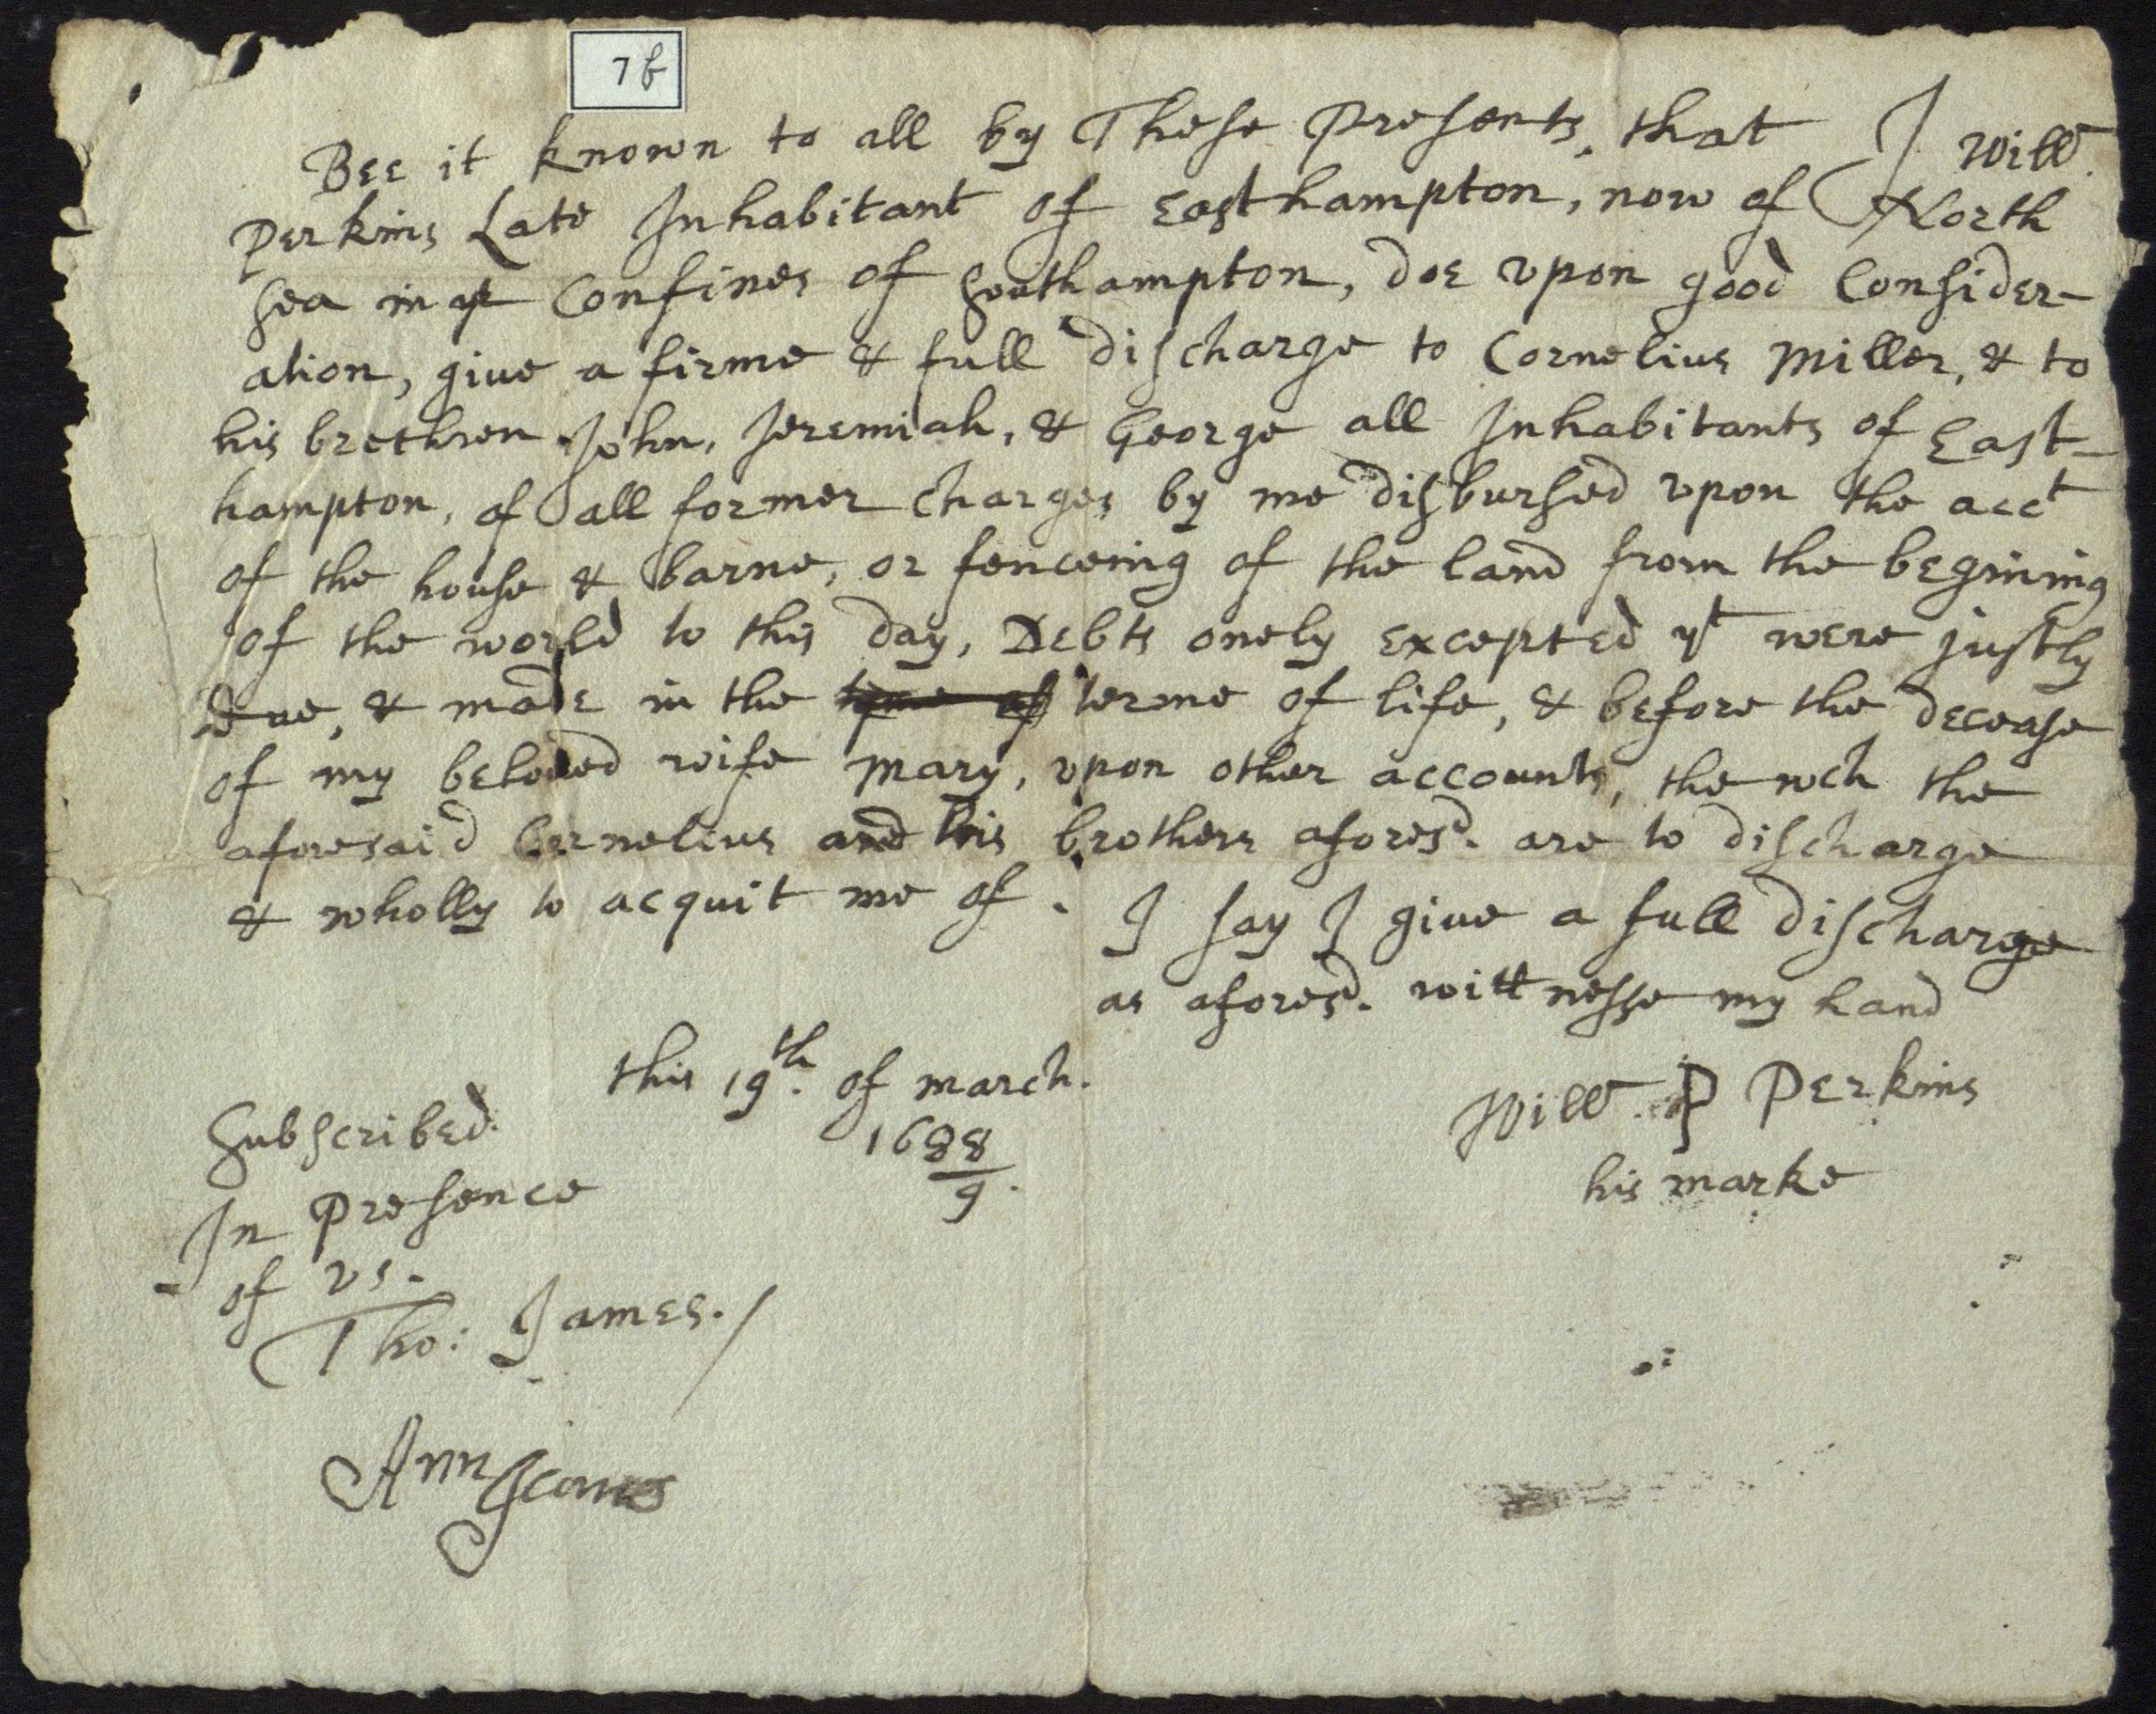 7b
Bee it known to all by These Presents, that I Will.
Perkins Late Inhabitant of Easthampton, now of North
sea in ye Confines of Southampton, doe vpon good Consider-
ation, giue a firme & full discharge to Cornelius Miller, & to
his brethren John, Jeremiah, & George all Inhabitants of East-
hampton, of all former charges by me disbursed vpon the acct
of the house & barne, or fenceing of the land from the begining
of the world to this day, Debts onely excepted yt were justly
due, & made in the terme of life, & before the decease
of my beloued wife Mary, vpon other accounts, the wch the
aforesaid Cornelius and his brothers aforesd. are to discharge
& wholly to acquit me of. I say I giue a full discharge
as aforesd. wittnesse my hand
this 19th. of march.
1688
9.
Will. P Perkins
his marke
Subscribed
In Presence
of vs.
Tho: James./
Ann James